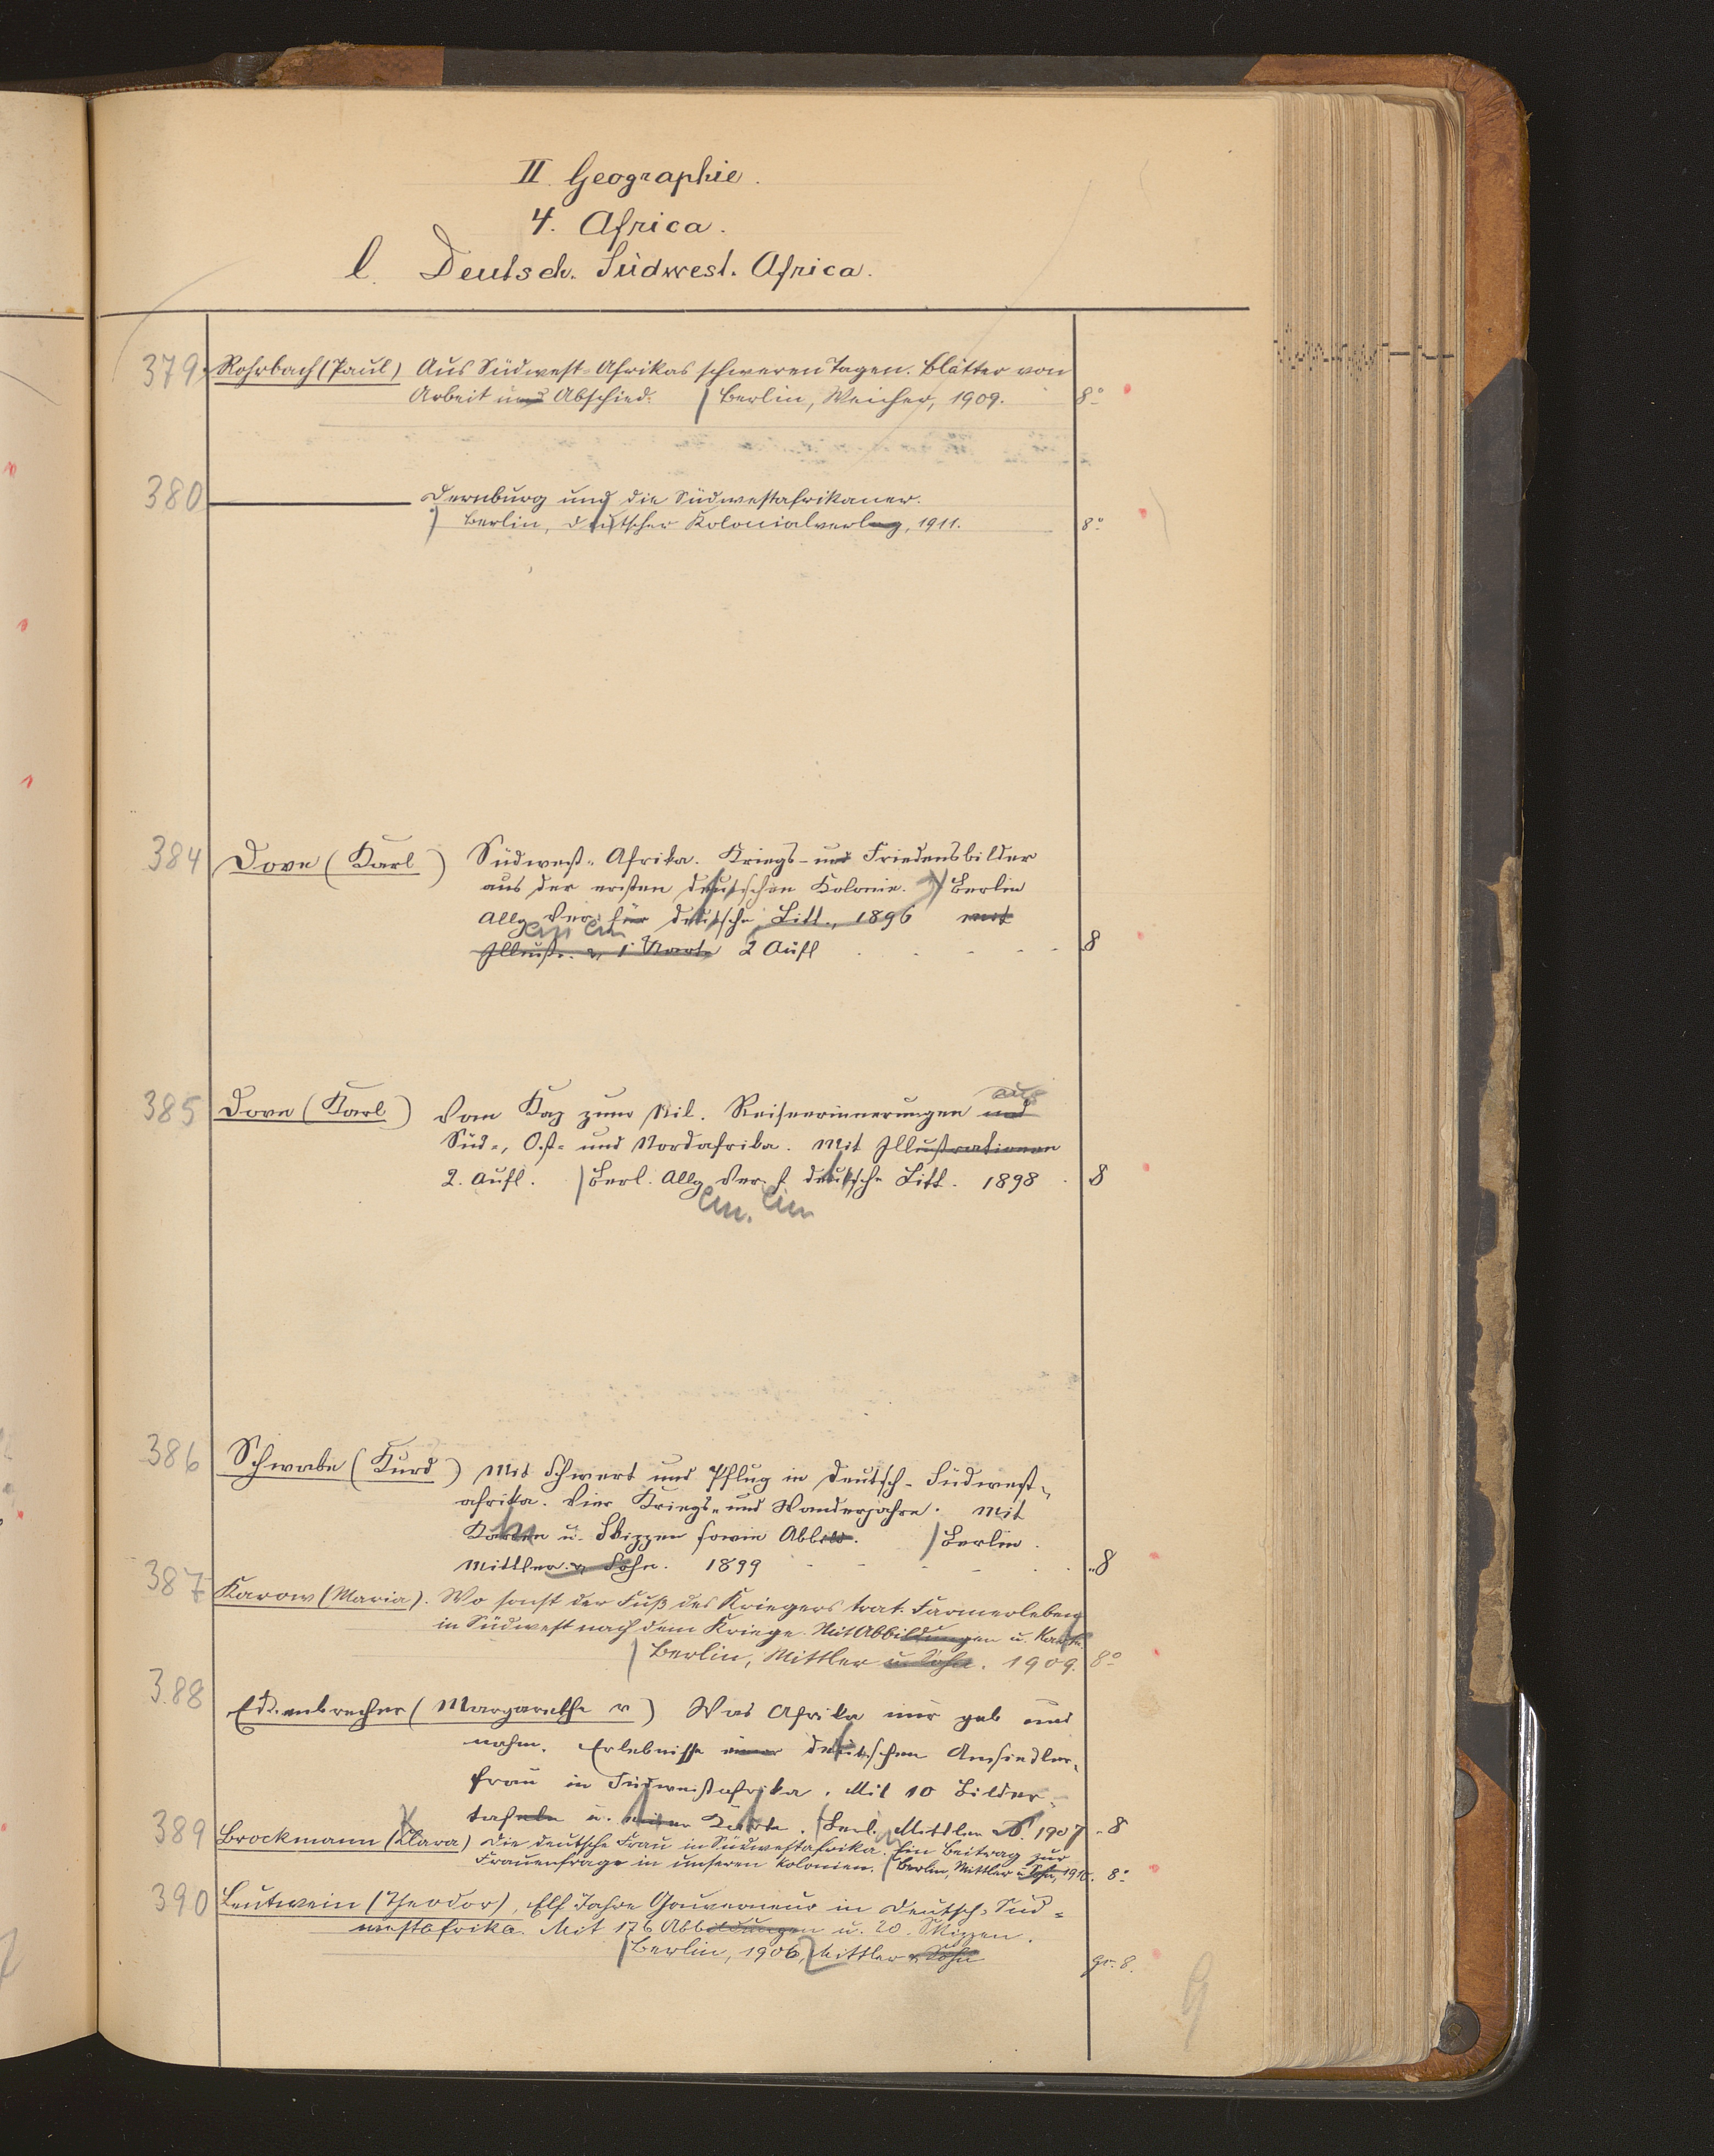 II. Geographie.
4. Africa.
l. Deutsch. Südwest. Africa.
379. Rohrbach (Paul) Aus Südwest-Afrikas schweren Tagen. Blätter von
Arbeit und Abschied. Berlin, Weicher, 1909. 8°
380 Dernburg und die Südwestafrikaner.
Berlin, Deutscher Kolonialverlag, 1911. 8°
384 Dove (Karl) Südwest-Afrika. Kriegs- und Friedensbilder
aus der ersten deutschen Kolonie. Berlin
Allg Ver. für deutsche Litt., 1896 mit
Illustr. u. 1 Karte 2 Aufl 8
aus
385 Dove (Karl) Vom Kap zum Nil. Reiseerinnerungen und
Süd-, Ost- und Nordafrika. Mit Illustrationen
2. Aufl. Berl. Allg Ver. f deutsche Litt. 1898 8
386 Schwabe (Kurd) Mit Schwert und Pflug in Deutsch-Südwest-
afrika. Vier Kriegs- und Wanderjahre. Mit
Karten u. Skizzen sowie Abbild. Berlin.
Mittler u. Sohn. 1899 8
387 Karow (Maria). Wo sonst der Fuß des Kriegers trat. Farmerleben
in Südwest nach dem Kriege. Mit Abbildungen u. Karte.
Berlin, Mittler u. Sohn. 1909. 8°
388 Eckenbrecher (Margarethe v) Was Afrika mir gab und
nahm. Erlebnisse einer deutschen Ansiedler-
frau in Südwestafrika. Mit 10 Bilder-
tafeln u. einer Karte. Berl. Mittler S. 1907 8
389 Brockmann (Clara) Die deutsche Frau in Südwestafrika. Ein Beitrag zur
Frauenfrage in unseren Kolonien. Berlin, Mittler u Sohn, 1910. 8°
390 Leutwein (Theodor), Elf Jahre Gouverneur in Deutsch-Süd-
westafrika. Mit 176 Abbildungen u. 20 Skizzen.
Berlin, 1906, Mittler u. Sohn gr. 8.